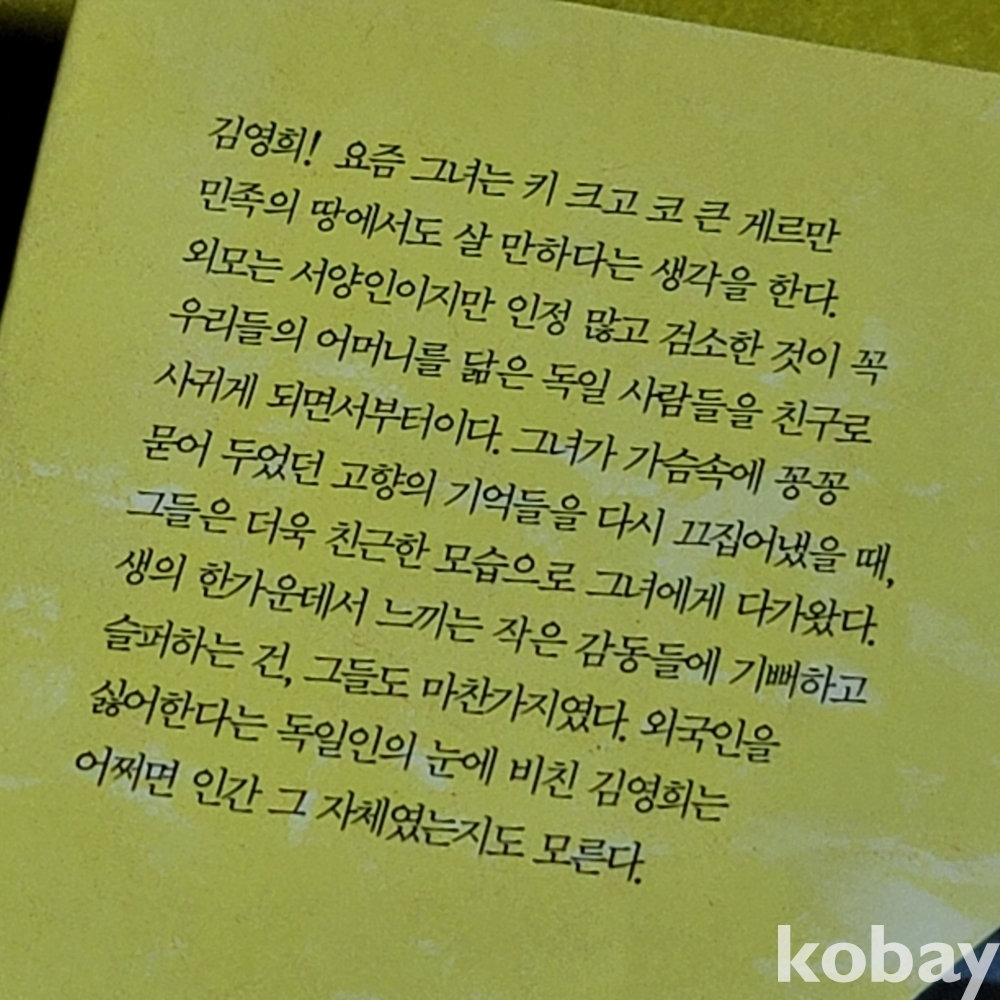 김영희! 요즘 그녀는 키 크고 코 큰 게르만
민족의 땅에서도 살 만하다는 생각을 한다.
외모는 서양인이지만 인정 많고 검소한 것이 꼭
우리들의 어머니를 닮은 독일 사람들을 친구로
사귀게 되면서부터이다. 그녀가 가슴속에 꽁꽁
묻어 두었던 고향의 기억들을 다시 끄집어냈을 때,
그들은 더욱 친근한 모습으로 그녀에게 다가왔다.
생의 한가운데서 느끼는 작은 감동들에 기뻐하고
슬퍼하는 건, 그들도 마찬가지였다. 외국인을
싫어한다는 독일인의 눈에 비친 김영희는
어쩌면 인간 그 자체였는지도 모른다.
kobay